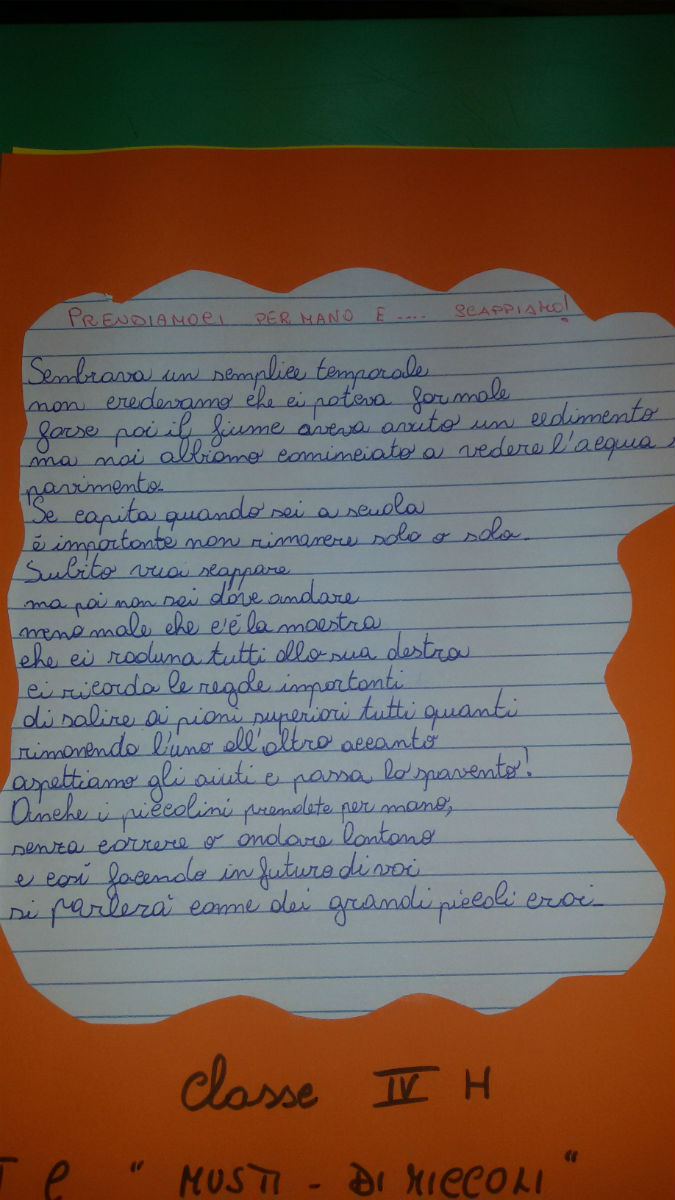 PRENDIAMOCI PER MANO E .... SCAPPIAMO!
Sembrava un semplice temporale
non credevamo che ci poteva far male
forse poi il fiume aveva avuto un cedimento
ma noi abbiamo cominciato a vedere l'acqua
pavimento.
Se capita quando sei a scuola
è importante non rimanere solo o sola.
Subito vuoi scappare
ma poi non sai dove andare
meno male che c'è la maestra
che ci raduna tutti alla sua destra
ci ricorda le regole importanti
di salire ai piani superiori tutti quanti
rimanendo l'uno all'altro accanto
aspettiamo gli aiuti e passa lo spavento!
Anche i piccolini prendete per mano,
senza correre o andare lontano
e così facendo in futuro di voi
si parlerà come dei grandi piccoli eroi.
Classe IV H
" MUSTI - DI MICCOLI "